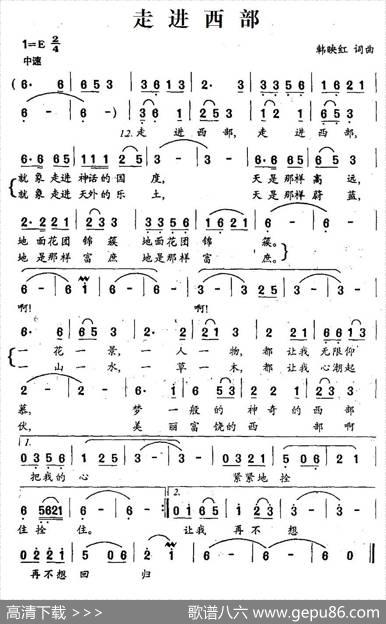 走进西部
1=E 2/4
韩映红 词曲
中速
(6· 6 | 6 5 3 | 3 6 1 3 | 2· 3 | 3 3 5 6 | 1 6 2 1 |
6 - | 6 -) | 3 6 1 | 2 5 3 | 3 6 1 | 2 5 3 |
1.2. 走 进 西 部, 走 进 西 部,
6·6 6 5 | 1 1 1 2 5 | 3 - | 3 - | 6·6 6 5 | 3 5 6 |
就象走进 神话的国 度, 天是那样高 远,
就象走进 天外的乐 土, 天是那样蔚 蓝,
2·2 2 1 | 2 2 3 | 3 3 5 6 | 1 6 2 1 | 6 - | 6 - |
地面花团 锦 簇 地面花团 锦 簇。
地是那样 富 庶 地是那样 富 庶。
啊! 啊!
一 花 一 景, 一 人 一 物, 都 让我 无限仰
一 山 一 水, 一 草 一 木, 都 让我 心潮起
2 - | 2 - | 6· 1 | 6 5 3 |
慕, 梦 一 般 的 神 奇 的 西 部
伏, 美 丽 富 饶 的 西 部 啊
1.
0 3 3 5 | 1 2 5 | 3 - | 3 - | 0 3 2 1 | 5 3 5 |
把我的 心 紧紧地 拴
2.
6 5621 | 6 - | 6 - :| 0 1 6 5 | 1 5 | 2 3 |
住拴 住。 让我 再 不 想
0 2 2 1 | 5 0 6 | 1 2 | 6 - | 6 - | 6 0 ‖
再不想 回 归
高清下载 >>>
歌谱八六 www.gepu86.com